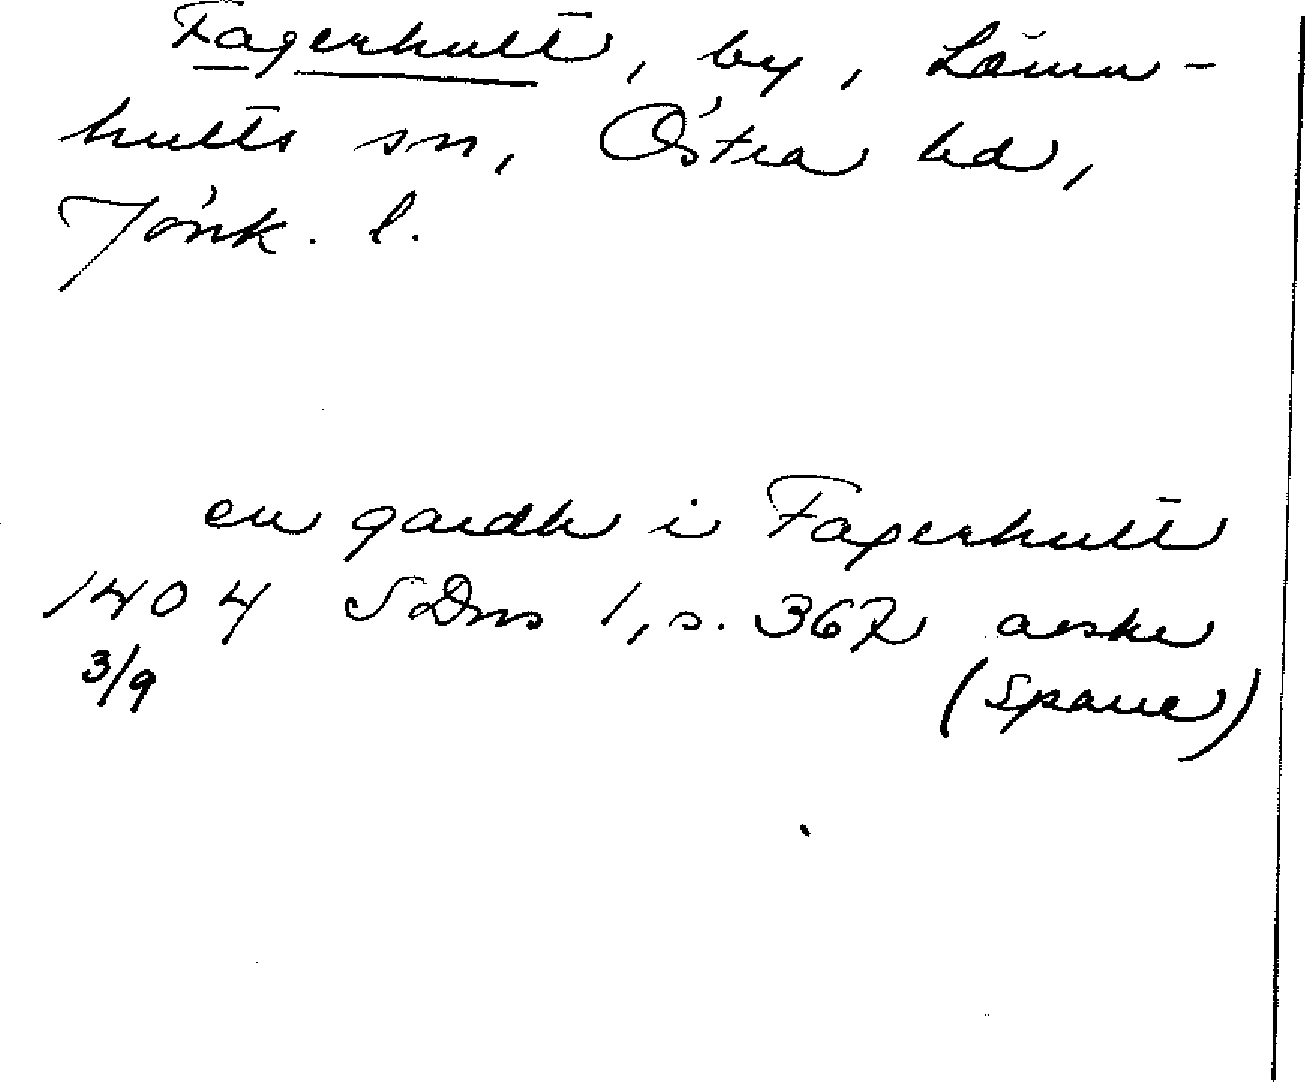 Fagerhult, by, Lämn-
hults sn, Östra hd,
Jönk. l.
en gardh i Fagerhult
1404 SDns 1, s. 367 avskr
3/9 (Sparre)